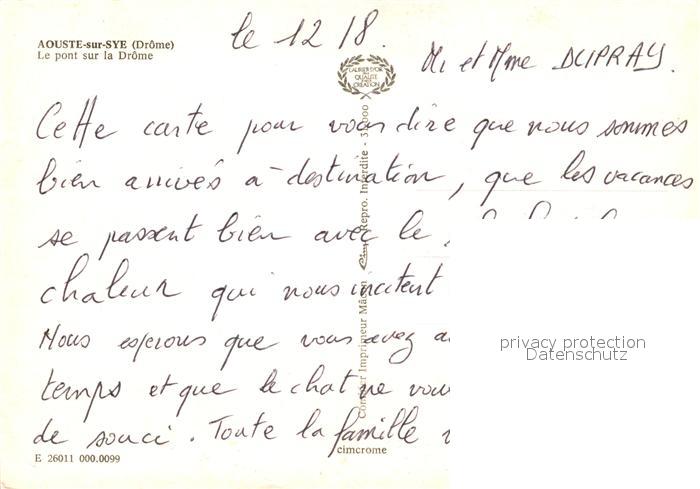 AOUSTE-sur-SYE (Drôme)
Le pont sur la Drôme
le 12/8.
Mr et Mme DUPRAY.
LAURIER D'OR
QUALITÉ
CREATION
Cette carte pour vous dire que nous sommes
bien arrivés à destination, que les vacances
se passent bien avec le
chaleur qui nous incitent
Nous espérons que vous avez
temps et que le chat ne vous
de souci. Toute la famille
Imprimeur Mâcon Cim Repro. Interdite
privacy protection
Datenschutz
E 26011 000.0099
cimcrome